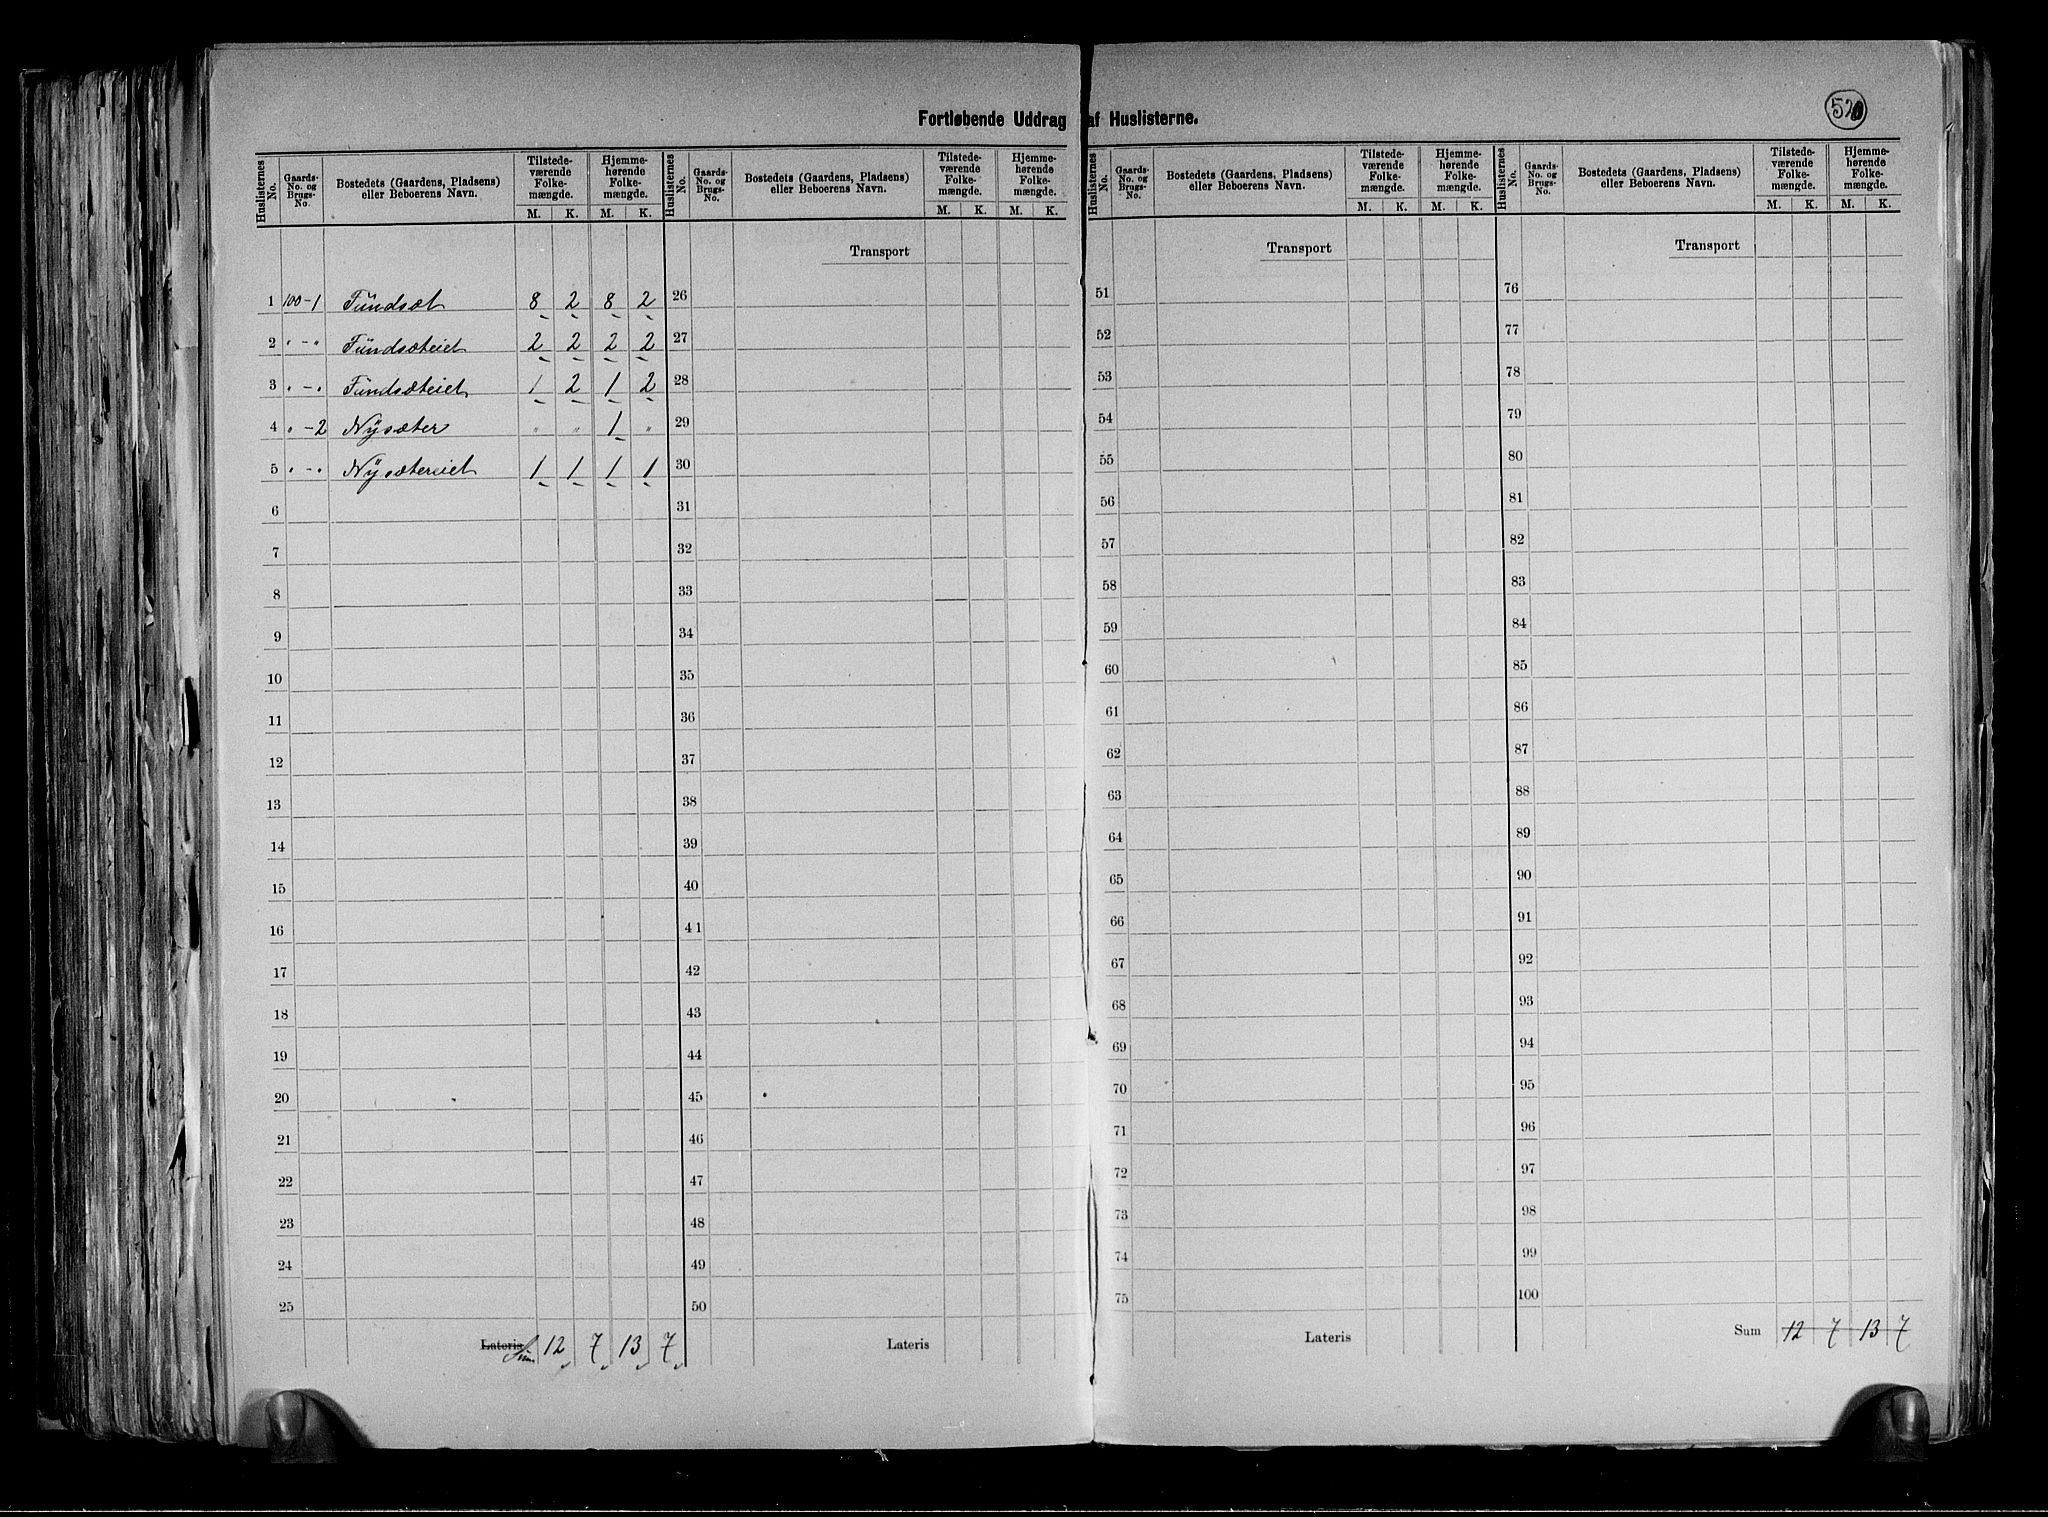 Fortløbende Uddrag af Huslisterne.
Huslisternes No.
Gaards-No. og Brugs-No.
Bostedets (Gaardens, Pladsens) eller Beboerens Navn.
Tilstedeværende Folkemængde.
M. K.
Hjemmehørende Folkemængde.
M. K.
Huslisternes No.
Gaards-No. og Brugs-No.
Bostedets (Gaardens, Pladsens) eller Beboerens Navn.
Tilstedeværende Folkemængde.
M. K.
Hjemmehørende Folkemængde.
M. K.
Huslisternes No.
Gaards-No. og Brugs-No.
Bostedets (Gaardens, Pladsens) eller Beboerens Navn.
Tilstedeværende Folkemængde.
M. K.
Hjemmehørende Folkemængde.
M. K.
Huslisternes No.
Gaards-No. og Brugs-No.
Bostedets (Gaardens, Pladsens) eller Beboerens Navn.
Tilstedeværende Folkemængde.
M. K.
Hjemmehørende Folkemængde.
M. K.
Transport Transport Transport
1 100-1 Fündsæt 8 2 8 2 26 51 76
2 " - " Fündsæteiet 2 2 2 2 27 52 77
3 " - " Fündsæteiet 1 2 1 2 28 53 78
4 " -2 Nysæter " " 1 " 29 54 79
5 " - " Nysætereiet 1 1 1 1 30 55 80
6 31 56 81
7 32 57 82
8 33 58 83
9 34 59 84
10 35 60 85
11 36 61 86
12 37 62 87
13 38 63 88
14 39 64 89
15 40 65 90
16 41 66 91
17 42 67 92
18 43 68 93
19 44 69 94
20 45 70 95
21 46 71 96
22 47 72 97
23 48 73 98
24 49 74 99
25 50 75 100
Lateris Sum 12 7 13 7 Lateris Lateris Sum 12 7 13 7